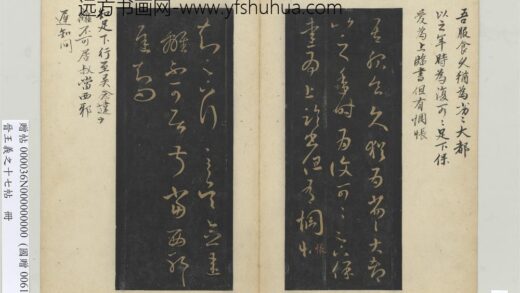 远方书画网- www.yfshuhua.com
吾服食久猶為劣〻大都
以之年時為復可〻足下保
愛為上臨書但有惆悵
吾服食久猶為劣〻大都
比之年時為復可〻足下保
愛為上臨書但有惆悵
知足下行至吳念違
離不可居叔當西耶
遲知問
知足下行至吳念違
離不可居叔當西耶
遲知問
贈帖 000036N000000000 (國贈 0061
晉王羲之十七帖 冊